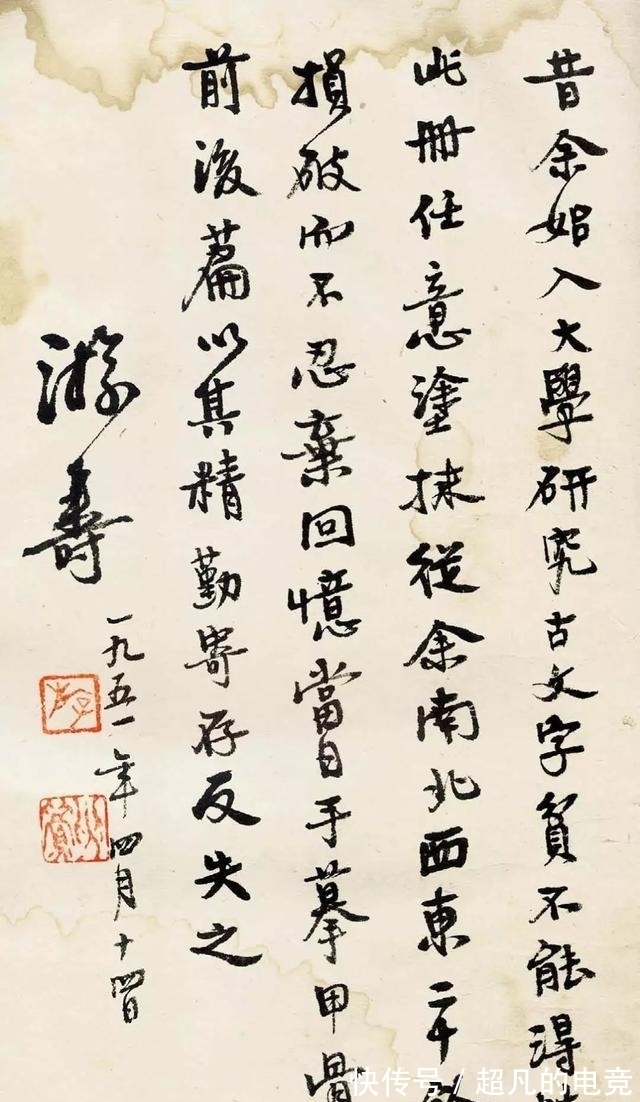 昔余始入大學研究古文字貧不能得
此冊任意塗抹從余南北西東二十
損破而不忍棄回憶當日手摹甲骨
前後篇以其精勤寄存反失之
游壽
一九五一年四月十四日
快传号/超凡的电竞